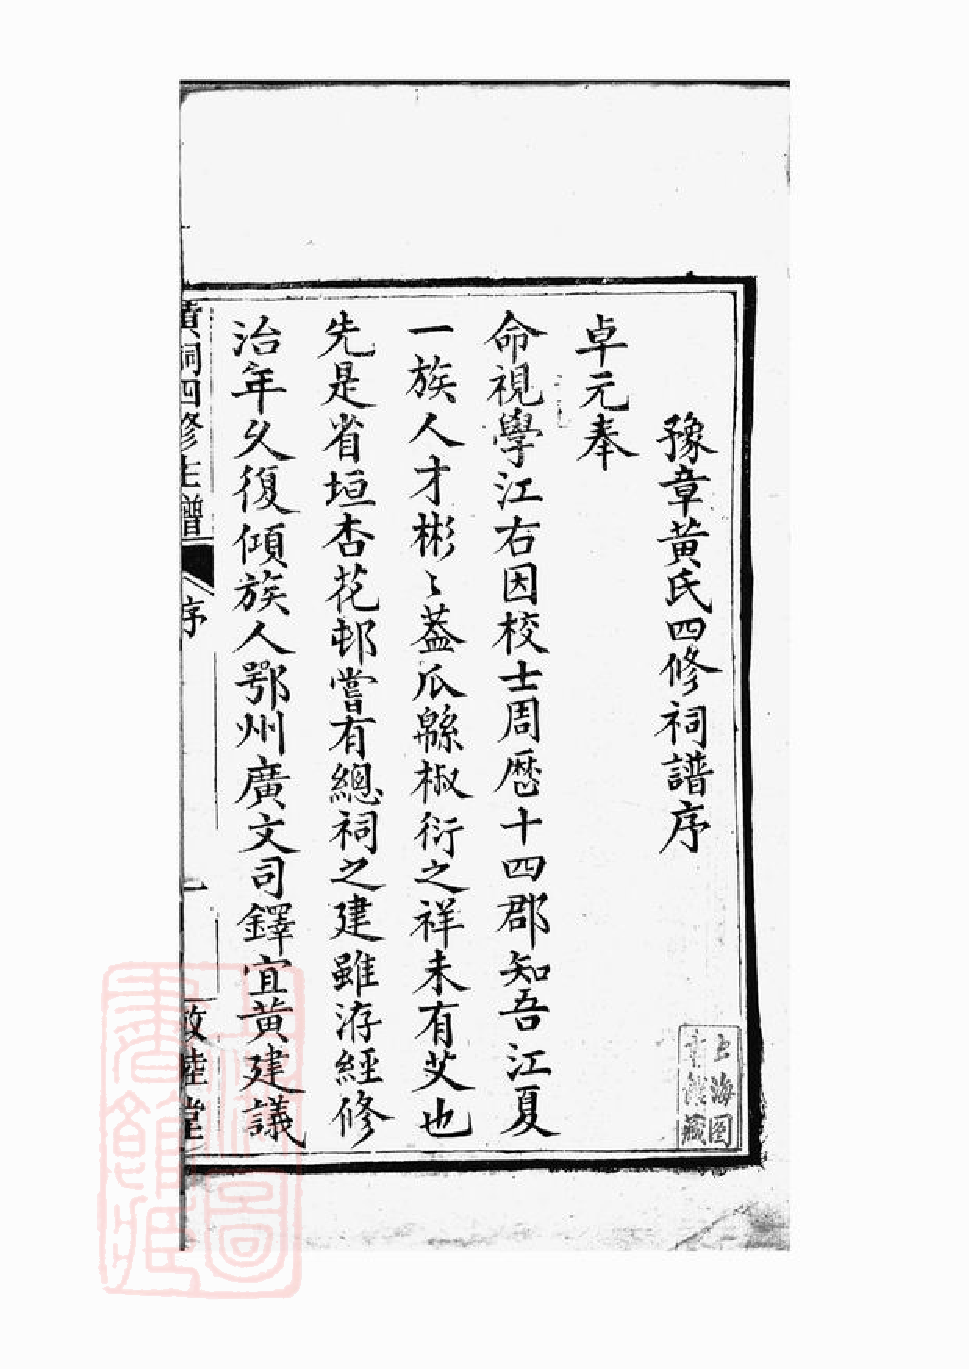 豫章黃氏四修祠譜序
卓元奉
命視學江右因校士周歷十四郡知吾江夏
一族人才彬〻蓋瓜緜椒衍之祥未有艾也
先是省垣杏花邨嘗有總祠之建雖洊經修
治年久復傾族人鄂州廣文司鐸宜黃建議
黃祠四修主譜
序
一
敦睦堂
上海图
書館藏
上海圖
書館藏